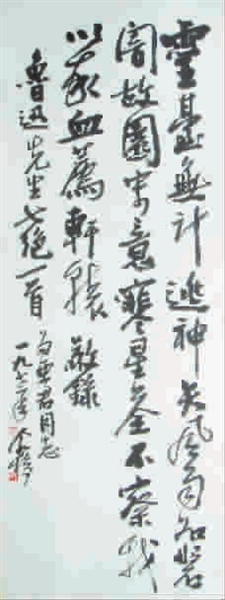 靈臺無計逃神矢風雨如磐
闇故園寄意寒星荃不察我
以我血薦軒轅 敬録
魯迅先生七絕一首
君同志
一九七